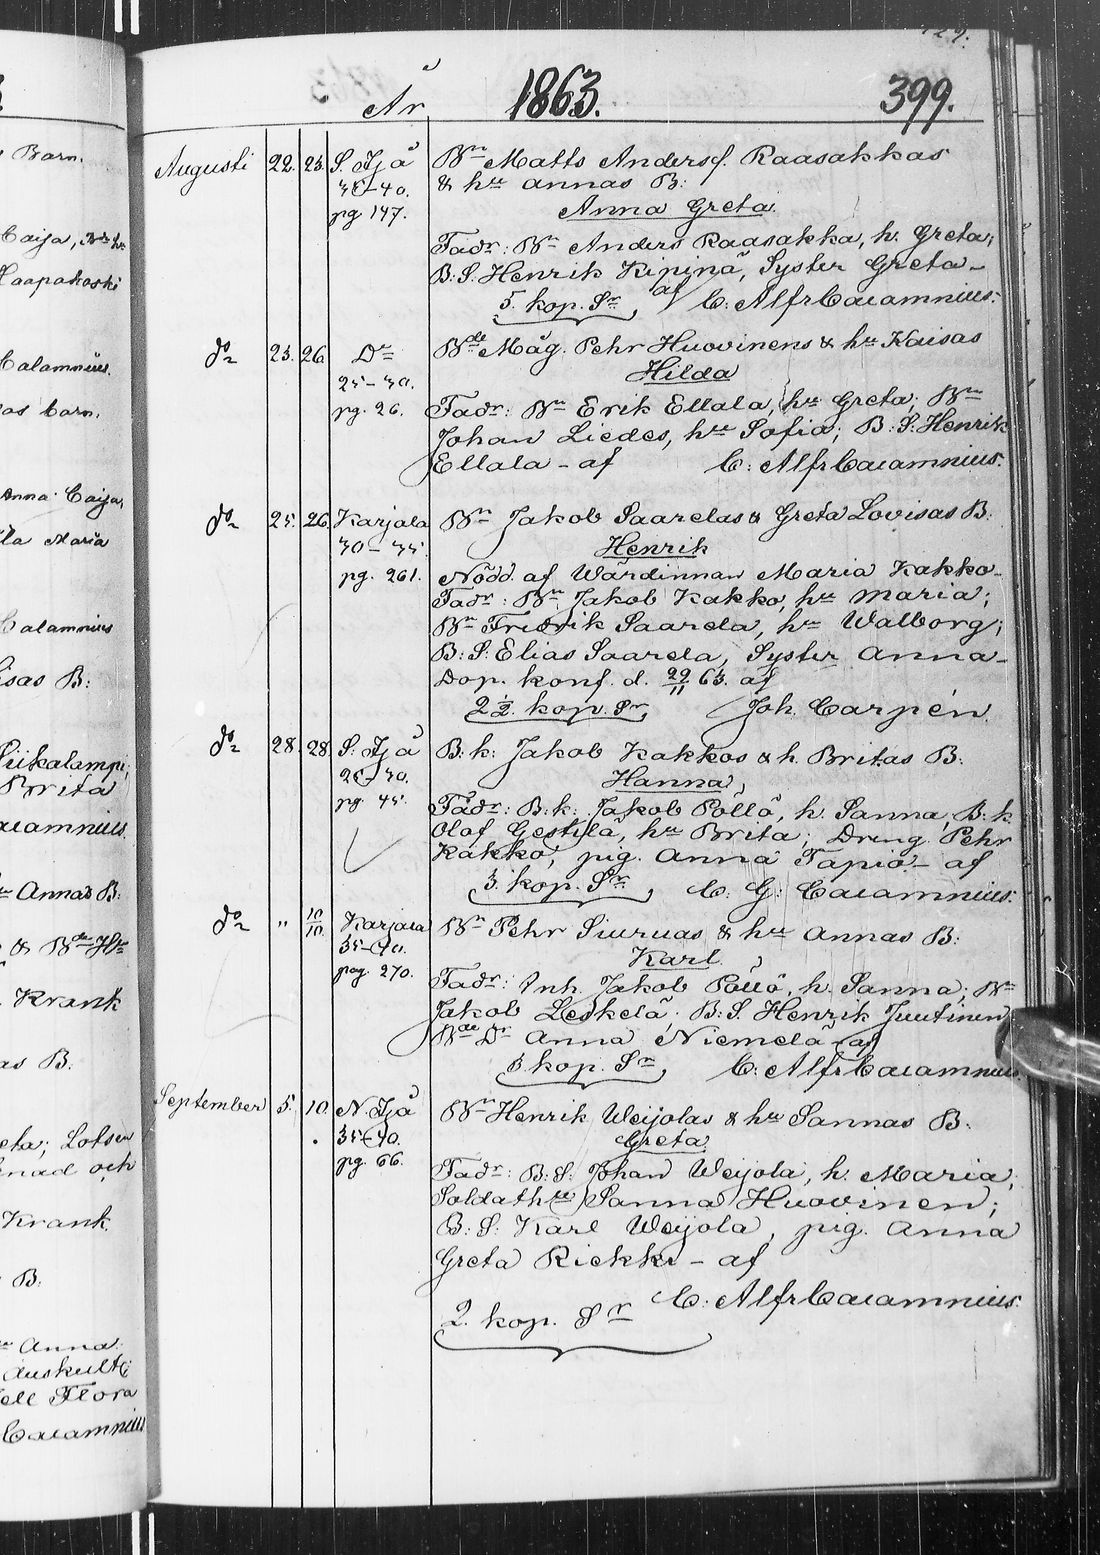 År 1863. 399.
Augusti 22. 23. S. Ijå Bn Matts Andersf. Raasakkas
35-40. & hu Annas B:
pg 147. Anna Greta.
Fadr: Bn Anders Raasakka, h. Greta;
B:S. Henrik Kipinä, Syster Greta-
5. kop. Sr af C: Alfr Calamnius.
do 23. 26. Do Bde Måg. Pehr Huovinens & hu Kaisas
25-30. Hilda
pg. 26. Fadr: Bn Erik Ellala, hu Greta; Bn
Johan Liedes, hu Sofia; B:S: Henrik
Ellala - af C: Alfr Calamnius.
do 25. 26. Karjala Bn Jakob Saarelas & Greta Lovisas B:
30-35. Henrik
pg. 261. Nödd. af Wärdinnan Maria Kakko-
Fadr: Bn Jakob Kakko, hu Maria;
Bn Fredrik Saarela, hu Walborg;
B:S: Elias Saarela, Syster Anna-
Dop. konf. d. 29/11 63. af
2 1/2. kop. Sr Joh. Carpén.
do 28. 28. S. Ijå B:k: Jakob Kakkos & h Britas B:
25-30. Hanna,
pg 45. Fadr: B:k: Jakob Pöllö, h. Sanna, B:k
Olof Gestilä, hu Brita; Dreng Pehr
Kakko, pig. Anna Tapio - af
3. kop. Sr C. G: Calamnius.
do " 10/10. Karjala Bn Pehr Siuruas & hu Annas B:
35-40. Karl.
pag 270. Fadr: Inh. Jakob Pöllö, h. Sanna; Bn
Jakob Leskelä; B:S. Henrik Juutinen
Bde Dr Anna Niemelä - af
3 kop. Sr C: Alfr Calamnius.
September 5. 10. N. Ijå Bn Henrik Weijolas & hu Sannas B:
35-40. Greta.
pg. 66. Fadr: B:S: Johan Weijola, h. Maria;
Soldath Sanna Huovinen;
B:S: Karl Weijola, pig. Anna
Greta Riekki - af
C: Alfr Calamnius.
2. kop. Sr
Barn.
Caija,
Haapakoski
Calamnius.
Barn.
Anna Caija,
Maria
Calamnius
B:
Siikalampi;
Brita
Calamnius
Annas B:
Krank
B:
Lotsen
och
Krank.
B:
Anna
Auskult:
Flora
Calamnius